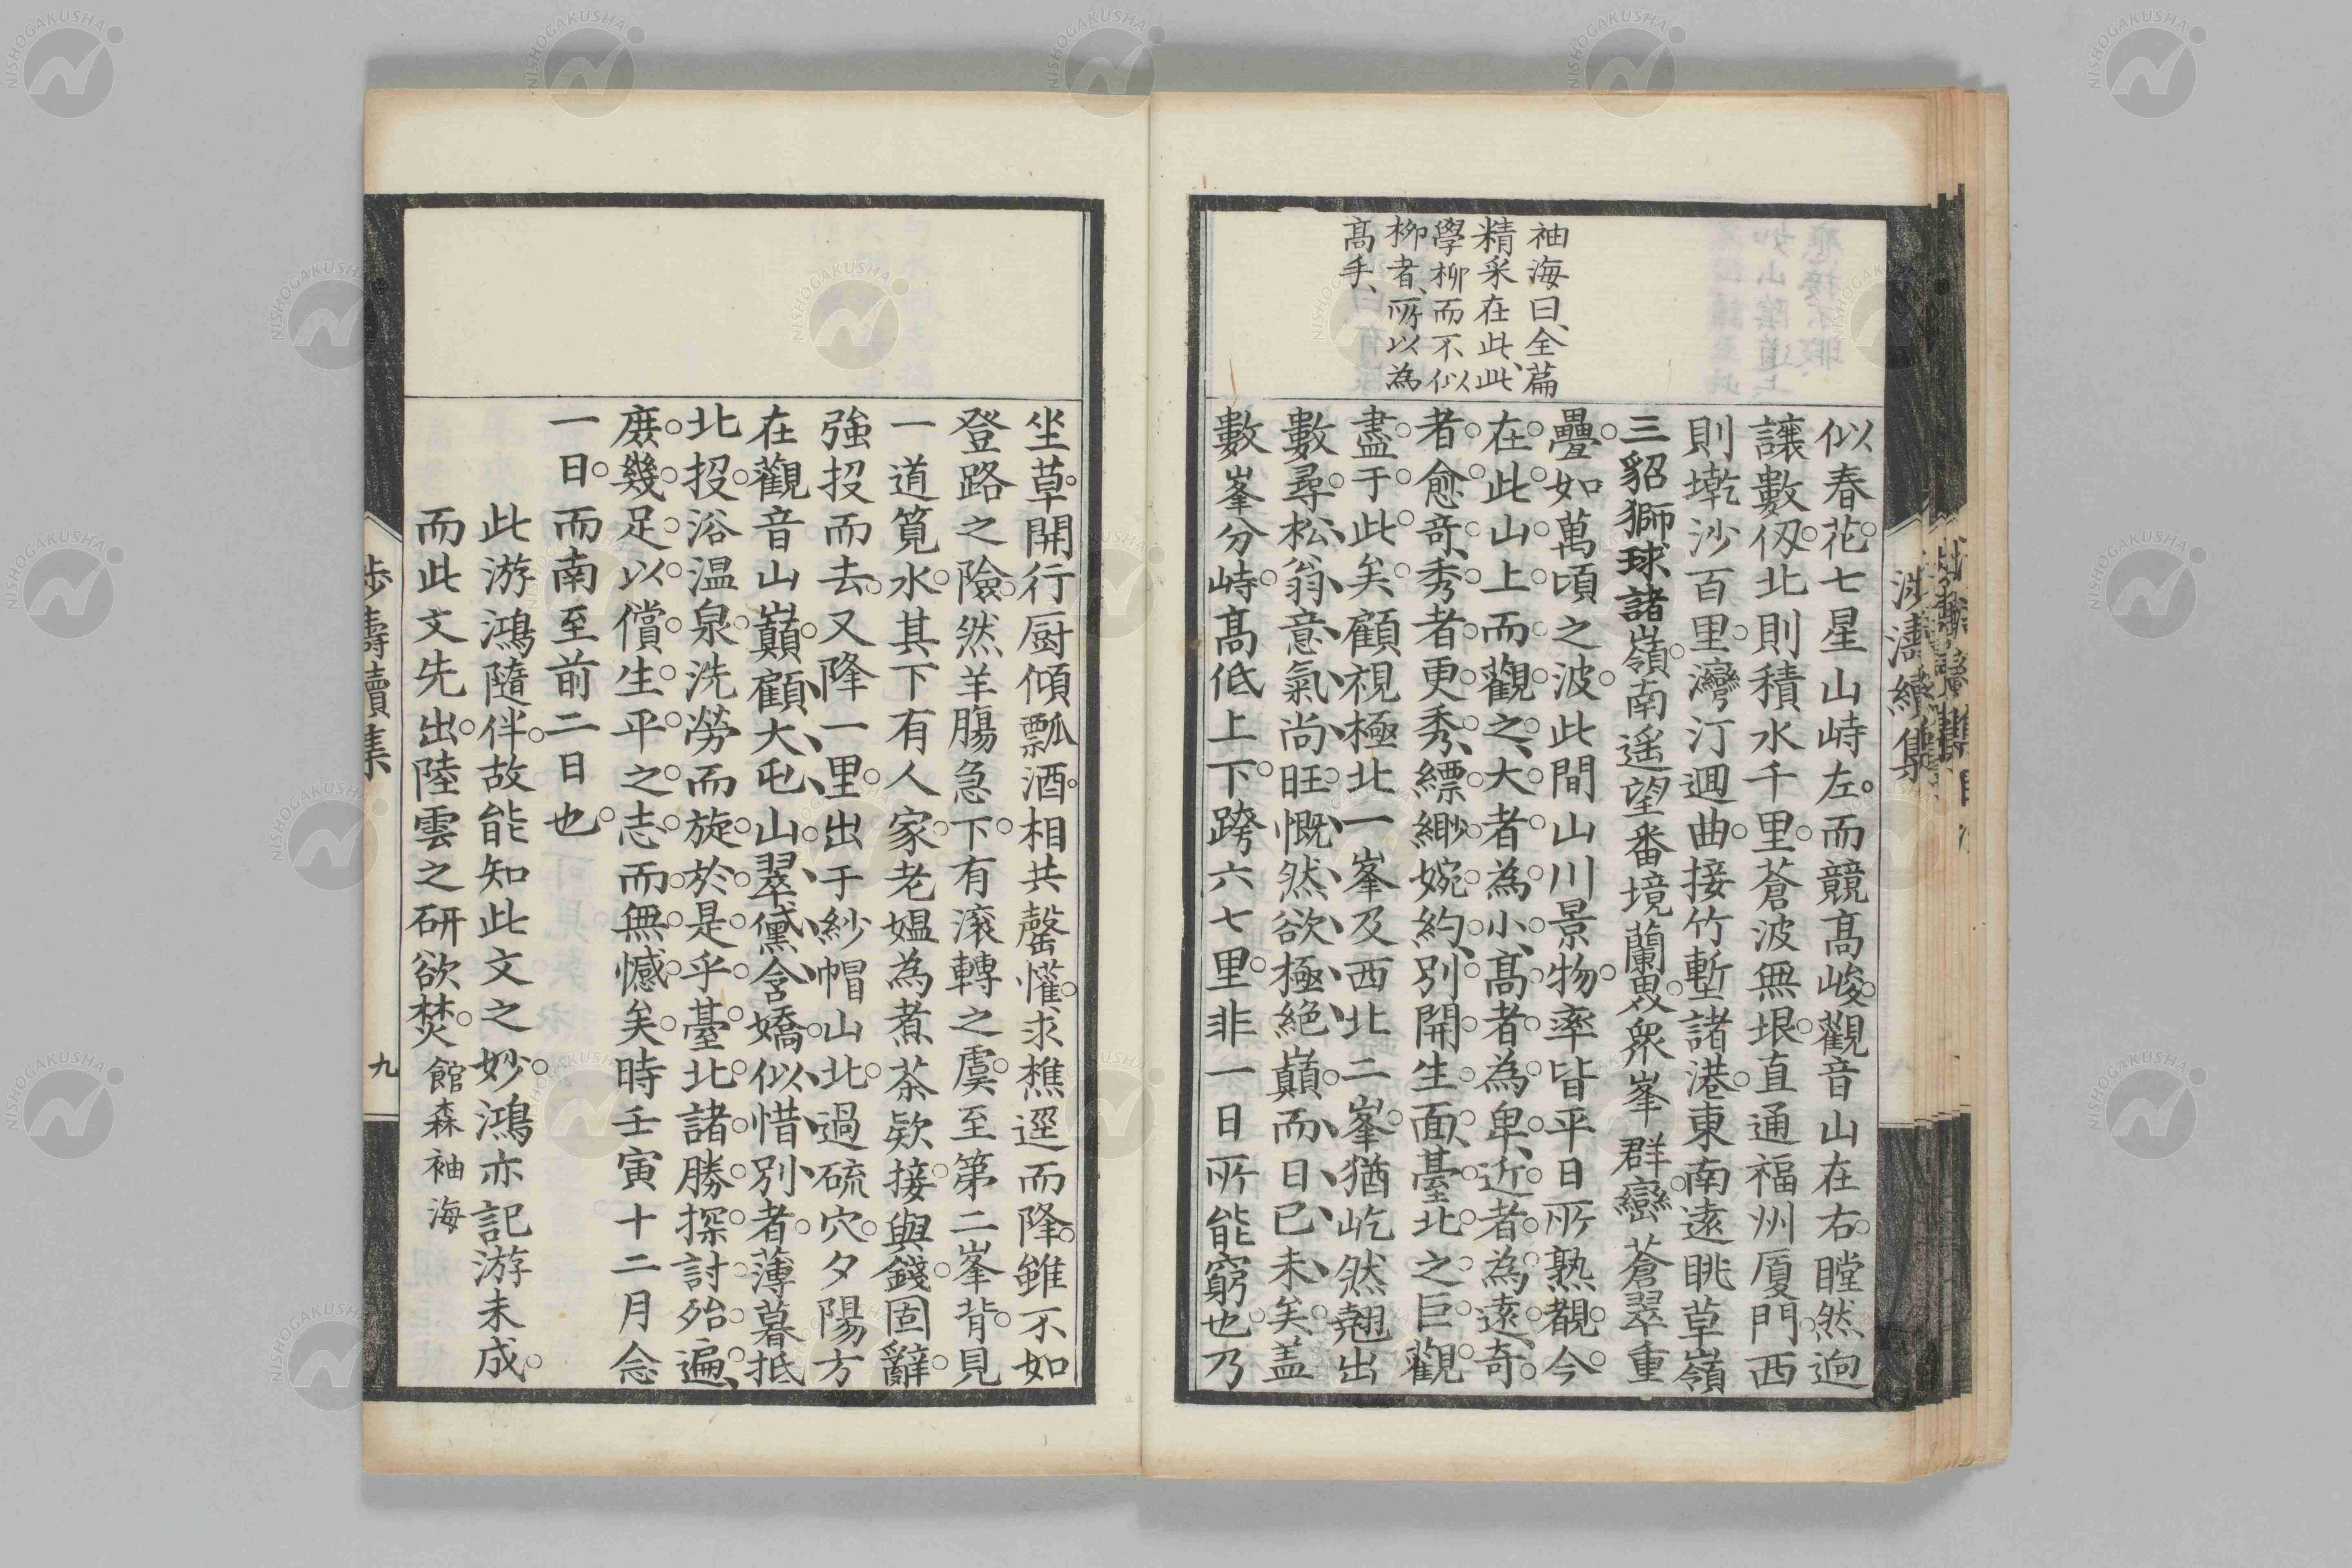 袖海曰、全篇
精采在此、此
學柳而不似
柳者、所以為
高手、
似春花。七星山峙左。而競高峻。觀音山在右。瞠然逈
讓數仭。北則積水千里。蒼波無垠。直通福州厦門。西
則墘沙百里。灣汀迴曲。接竹塹諸港。東南遠眺草嶺
三貂獅球諸嶺。南遥望番境蘭界。衆峯群巒。蒼翠重
疊。如萬頃之波。此間山川景物。率皆平日所熟覩。今
在此山上而觀之、大者為小、高者為卑、近者為遠、奇
者愈奇、秀者更秀、縹緲婉約、別開生面、臺北之巨觀
盡于此矣。顧視極北一峯及西北二峯。猶屹然翹出
數尋。松翁意氣尚旺。慨然欲極絶巔。而日已未矣。盖
數峯分峙。高低上下。跨六七里。非一日所能窮也。乃
坐草。開行厨傾瓢酒。相共罄懽。求樵逕而降。雖不如
登路之險。然羊膓急下。有滚轉之虞。至第二峯背。見
一道筧水。其下有人家。老媼為煮茶欵接。與錢固辭。
強投而去。又降一里。出于紗帽山北。過硫穴。夕陽方
在觀音山巔。顧大屯山、翠黛含嬌、似惜別者。薄暮抵
北投。浴温泉。洗勞而旋。於是乎臺北諸勝。探討殆遍、
庶幾足以償生平之志。而無憾矣。時壬寅十二月念
一日。而南至前二日也。
此游鴻隨伴。故能知此文之妙。鴻亦記游未成。
而此文先出。陸雲之研欲焚。館森袖海
涉濤續集
九
涉濤續集